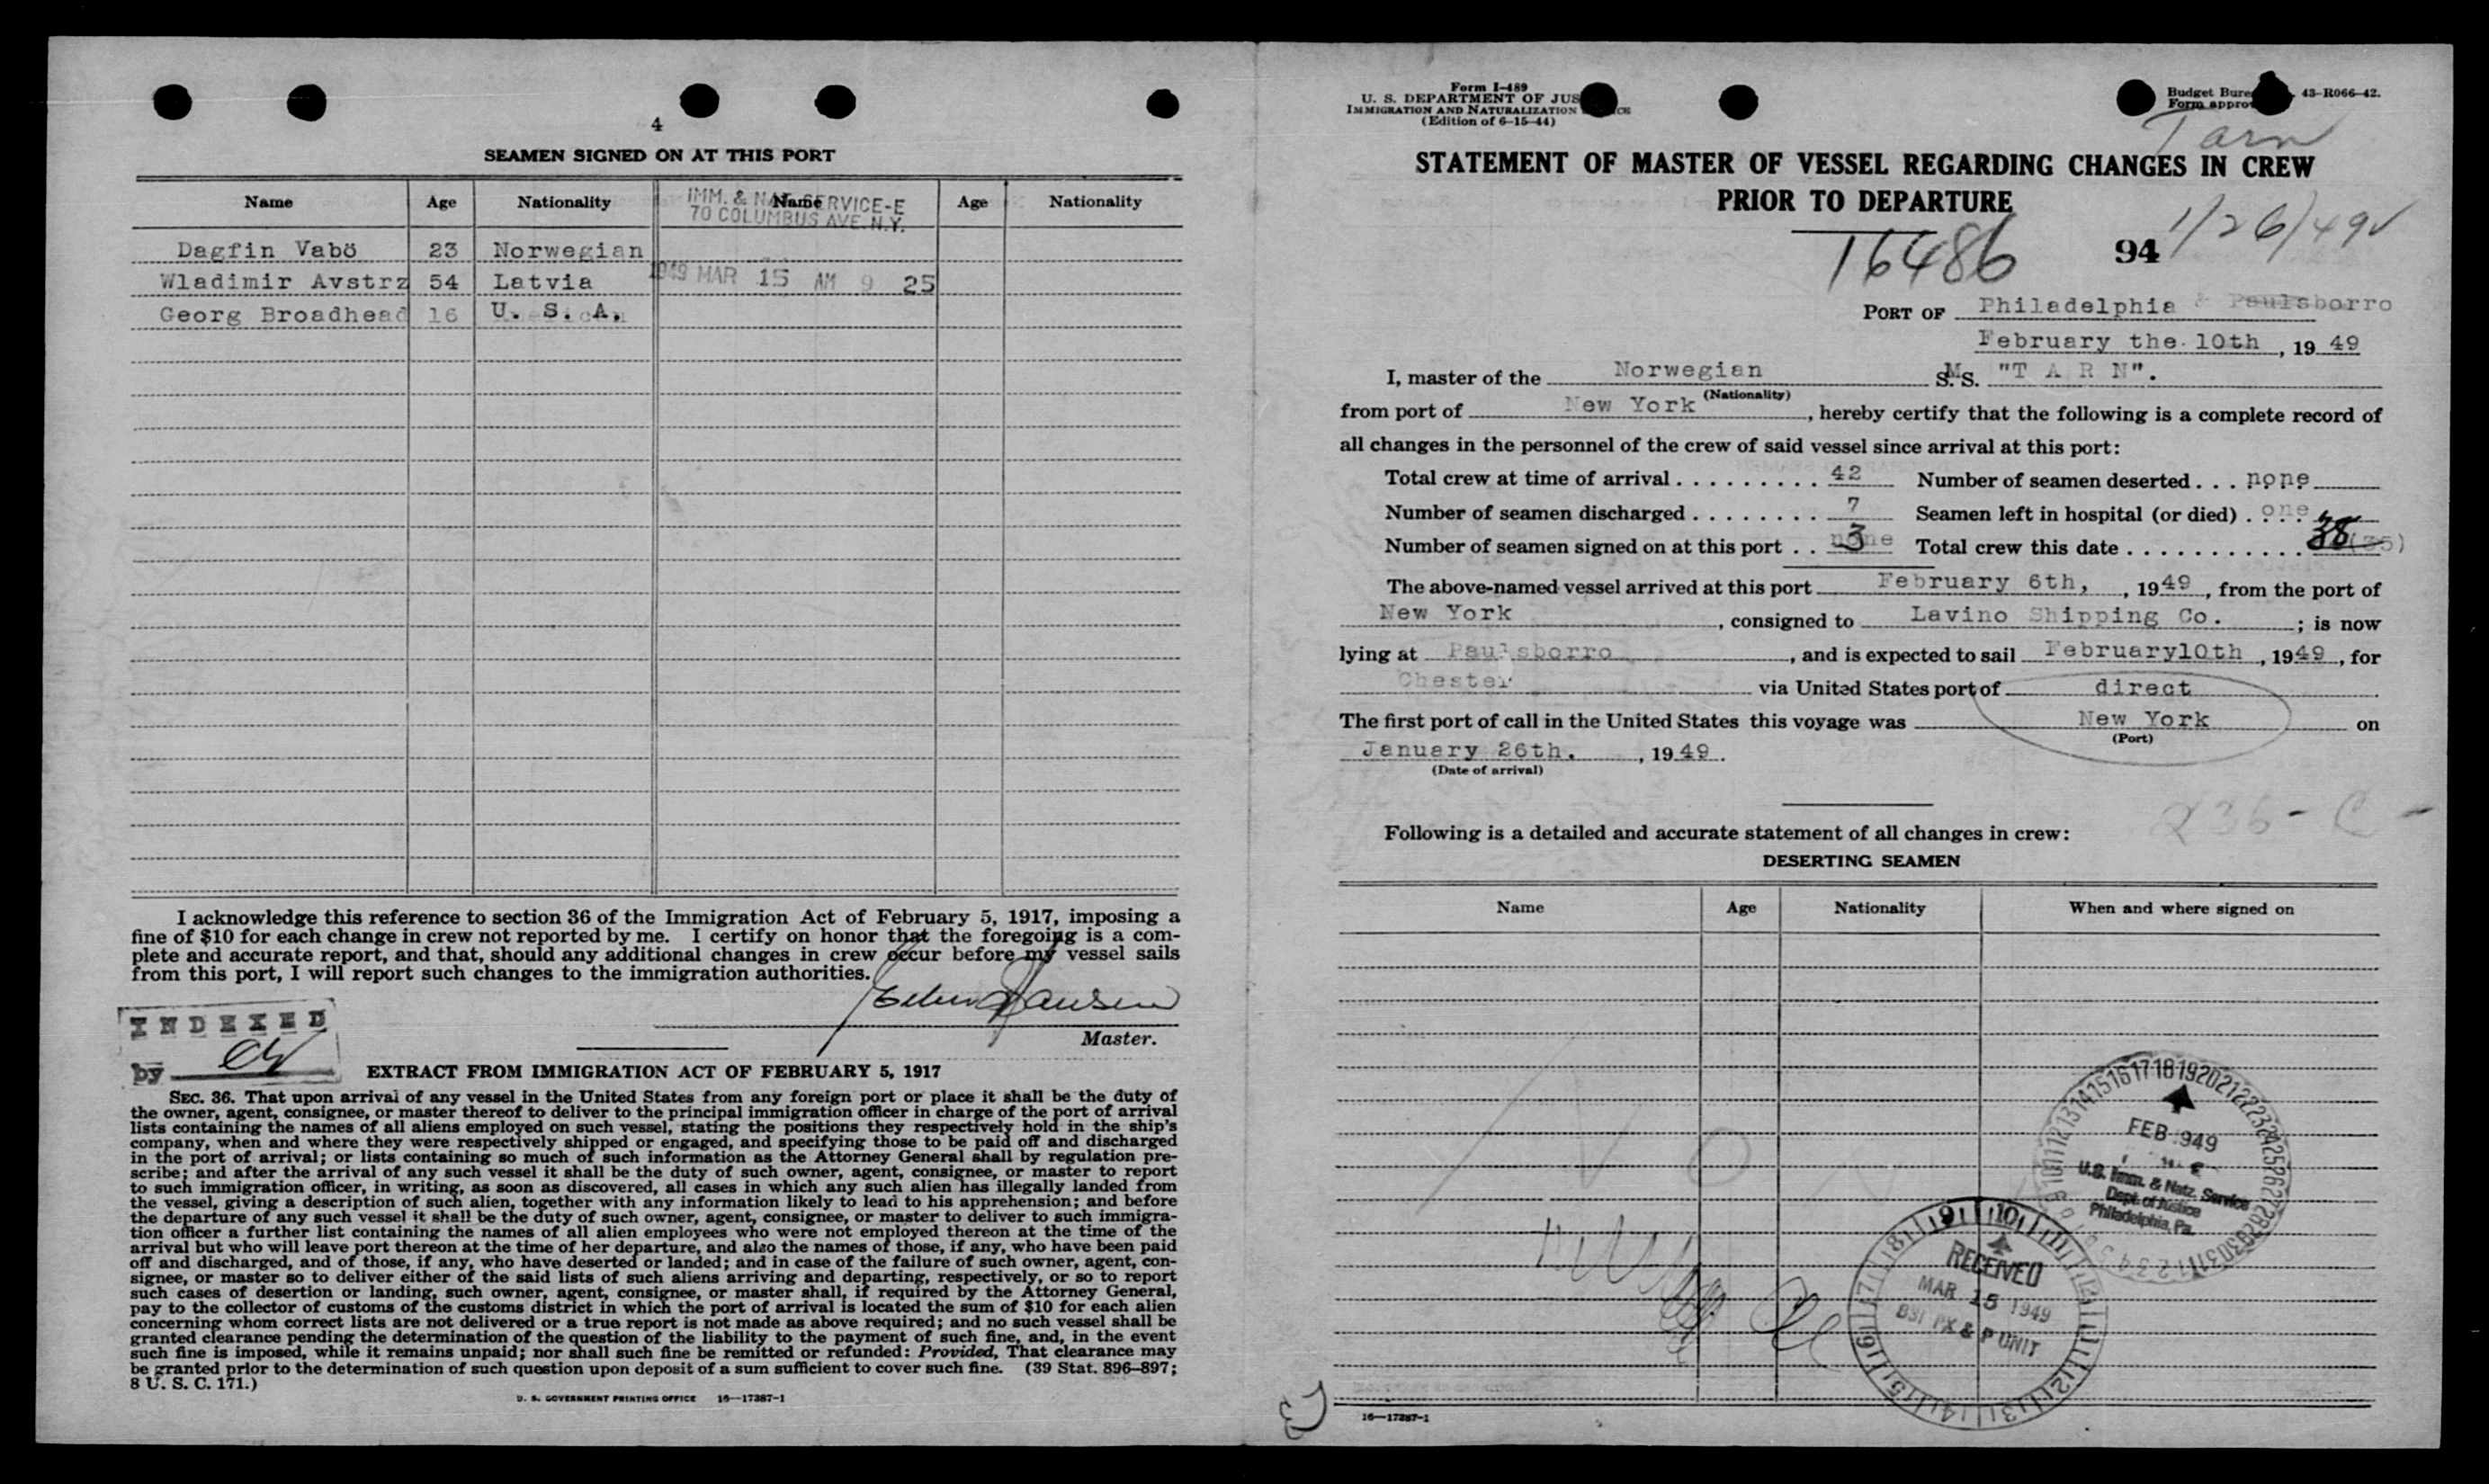 4
SEAMEN SIGNED ON AT THIS PORT
Name Age Nationality Name Age Nationality
IMM. & NAT. SERVICE-E
70 COLUMBUS AVE. N.Y.
Dagfin Vabö 23 Norwegian
Wladimir Avstrz 54 Latvia
1949 MAR 15 AM 9 25
Georg Broadhead 16 U. S. A.
I acknowledge this reference to section 36 of the Immigration Act of February 5, 1917, imposing a
fine of $10 for each change in crew not reported by me. I certify on honor that the foregoing is a com-
plete and accurate report, and that, should any additional changes in crew occur before my vessel sails
from this port, I will report such changes to the immigration authorities.
Master.
INDEXED
by
EXTRACT FROM IMMIGRATION ACT OF FEBRUARY 5, 1917
SEC. 36. That upon arrival of any vessel in the United States from any foreign port or place it shall be the duty of
the owner, agent, consignee, or master thereof to deliver to the principal immigration officer in charge of the port of arrival
lists containing the names of all aliens employed on such vessel, stating the positions they respectively hold in the ship's
company, when and where they were respectively shipped or engaged, and specifying those to be paid off and discharged
in the port of arrival; or lists containing so much of such information as the Attorney General shall by regulation pre-
scribe; and after the arrival of any such vessel it shall be the duty of such owner, agent, consignee, or master to report
to such immigration officer, in writing, as soon as discovered, all cases in which any such alien has illegally landed from
the vessel, giving a description of such alien, together with any information likely to lead to his apprehension; and before
the departure of any such vessel it shall be the duty of such owner, agent, consignee, or master to deliver to such immigra-
tion officer a further list containing the names of all alien employees who were not employed thereon at the time of the
arrival but who will leave port thereon at the time of her departure, and also the names of those, if any, who have been paid
off and discharged, and of those, if any, who have deserted or landed; and in case of the failure of such owner, agent, con-
signee, or master so to deliver either of the said lists of such aliens arriving and departing, respectively, or so to report
such cases of desertion or landing, such owner, agent, consignee, or master shall, if required by the Attorney General,
pay to the collector of customs of the customs district in which the port of arrival is located the sum of $10 for each alien
concerning whom correct lists are not delivered or a true report is not made as above required; and no such vessel shall be
granted clearance pending the determination of the question of the liability to the payment of such fine, and, in the event
such fine is imposed, while it remains unpaid; nor shall such fine be remitted or refunded: Provided, That clearance may
be granted prior to the determination of such question upon deposit of a sum sufficient to cover such fine. (39 Stat. 896–897;
8 U. S. C. 171.)
U. S. GOVERNMENT PRINTING OFFICE 16—17387-1
Form I-489
U. S. DEPARTMENT OF JUS
IMMIGRATION AND NATURALIZATION
(Edition of 6-15-44)
Budget Bure 43-R066-42.
Form appro
Tarn
STATEMENT OF MASTER OF VESSEL REGARDING CHANGES IN CREW
PRIOR TO DEPARTURE
16486
94
1/26/49
PORT OF Philadelphia & Paulsborro
February the 10th, 19 49
I, master of the Norwegian M S.S. "T A R N".
(Nationality)
from port of New York, hereby certify that the following is a complete record of
all changes in the personnel of the crew of said vessel since arrival at this port:
Total crew at time of arrival 42 Number of seamen deserted none
Number of seamen discharged 7 Seamen left in hospital (or died) one
Number of seamen signed on at this port 3 none Total crew this date 38 (35)
The above-named vessel arrived at this port February 6th, , 1949, from the port of
New York, consigned to Lavino Shipping Co. ; is now
lying at Paulsborro, and is expected to sail February10th, 1949, for
Chester via United States port of direct
The first port of call in the United States this voyage was New York on
(Port)
January 26th. , 1949.
(Date of arrival)
236-C-
Following is a detailed and accurate statement of all changes in crew:
DESERTING SEAMEN
Name Age Nationality When and where signed on
FEB 949
U.S. Imm. & Natz. Service
Dept. of Justice
Philadelphia, Pa.
RECEIVED
MAR 15 1949
& P UNIT
16—17387-1